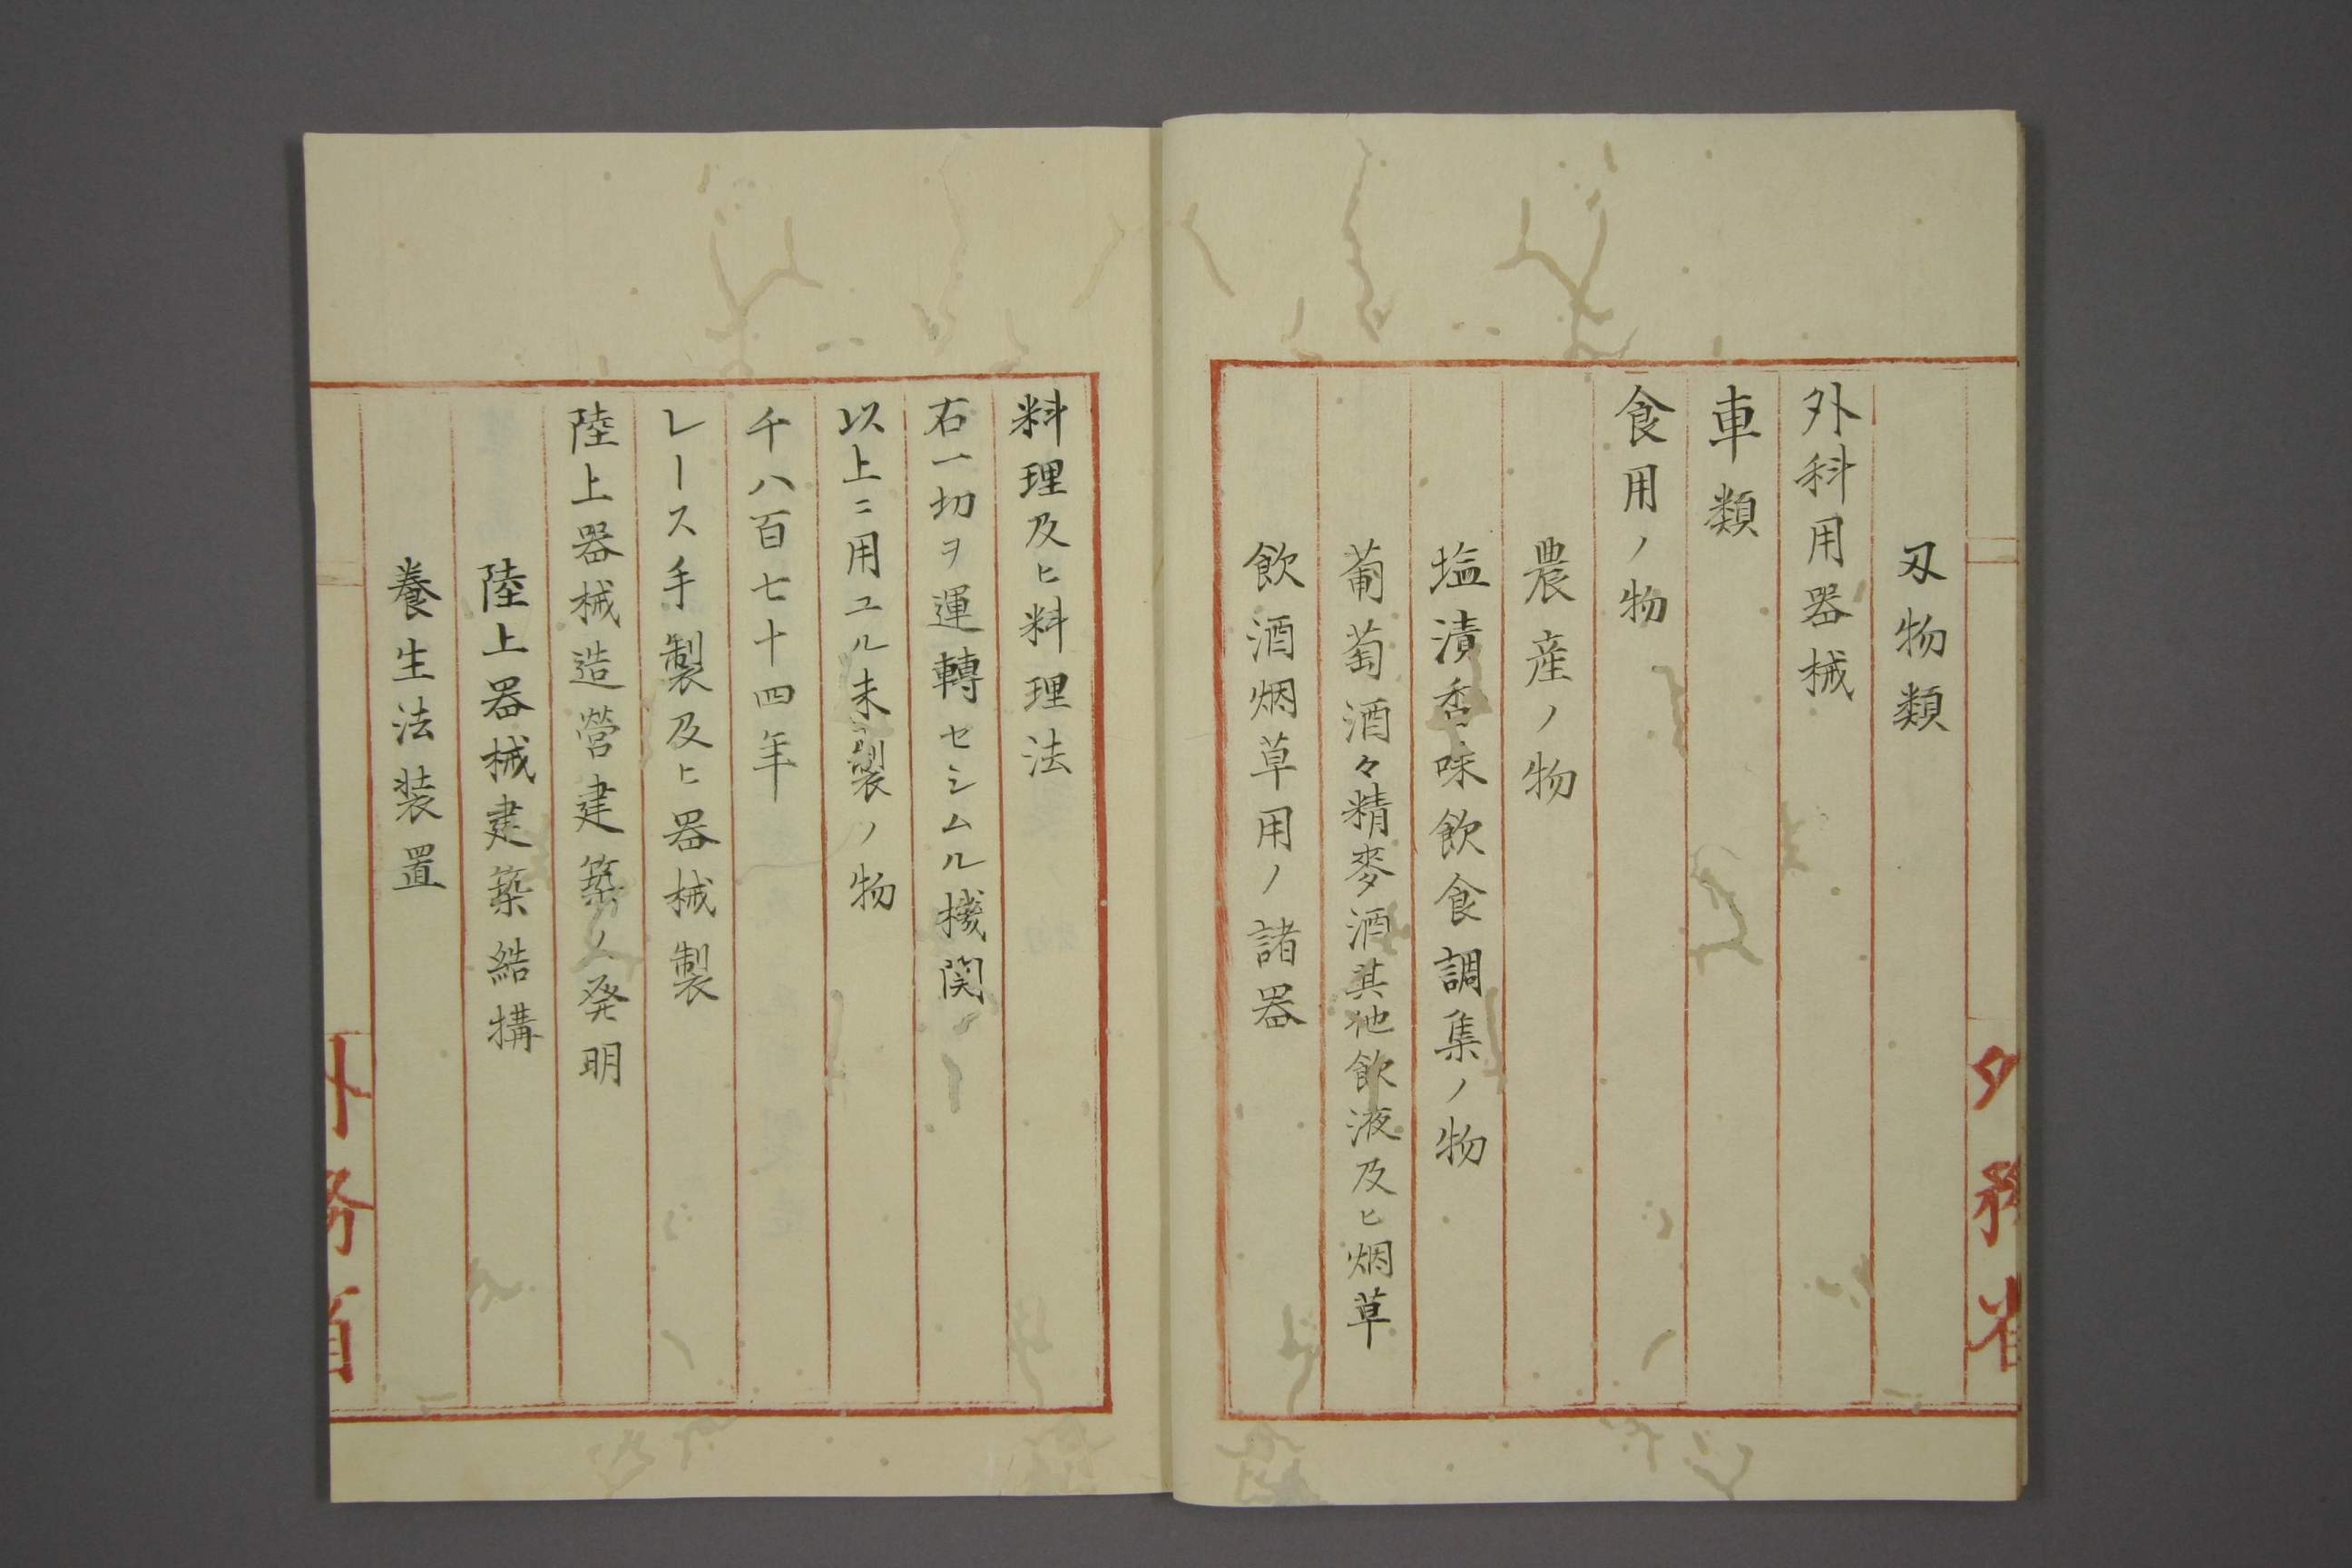 刄物類
外科用器械
車類
食用ノ物
農産ノ物
塩漬香味飲食調集ノ物
葡萄酒々精麥酒其他飲液及ヒ烟草
飲酒烟草用ノ諸器
外務省
料理及ヒ料理法
右一切ヲ運轉セシムル機関
以上ニ用ユル未製ノ物
千八百七十四年
レース手製及ヒ器械製
陸上器械造營建築ノ発明
陸上器械建築結搆
養生法装置
外務省